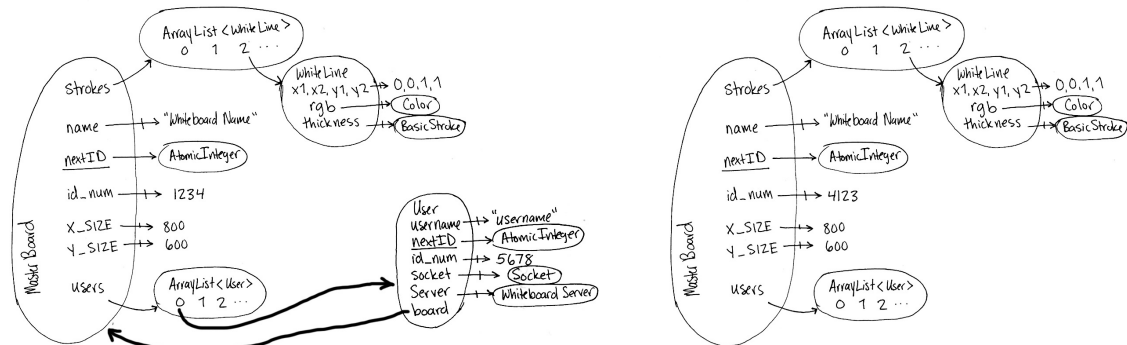 ArrayList<WhiteLine>
0 1 2 ...
Strokes
WhiteLine
x1, x2, y1, y2 0,0,1,1
rgb Color
thickness BasicStroke
name "Whiteboard Name"
nextID AtomicInteger
id_num 1234
X_SIZE 800
Y_SIZE 600
Master Board
users
ArrayList<User>
0 1 2 ...
User
username "username"
nextID AtomicInteger
id_num 5678
socket Socket
Server Whiteboard Server
board
ArrayList<WhiteLine>
0 1 2 ...
Strokes
WhiteLine
x1, x2, y1, y2 0,0,1,1
rgb Color
thickness BasicStroke
name "Whiteboard Name"
nextID AtomicInteger
id_num 4123
X_SIZE 800
Y_SIZE 600
Master Board
users
ArrayList<User>
0 1 2 ...